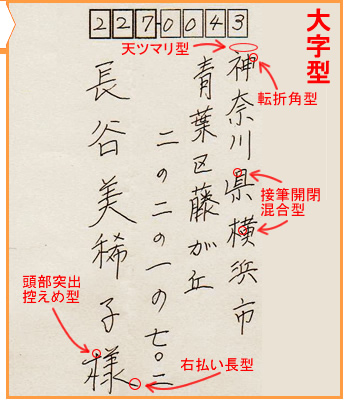 大字型
227-0043
天ツマリ型
神奈川県横浜市
転折角型
接筆開閉
混合型
青葉区藤が丘
二の二の一の七〇二
長谷美稀子様
頭部突出
控えめ型
右払い長型